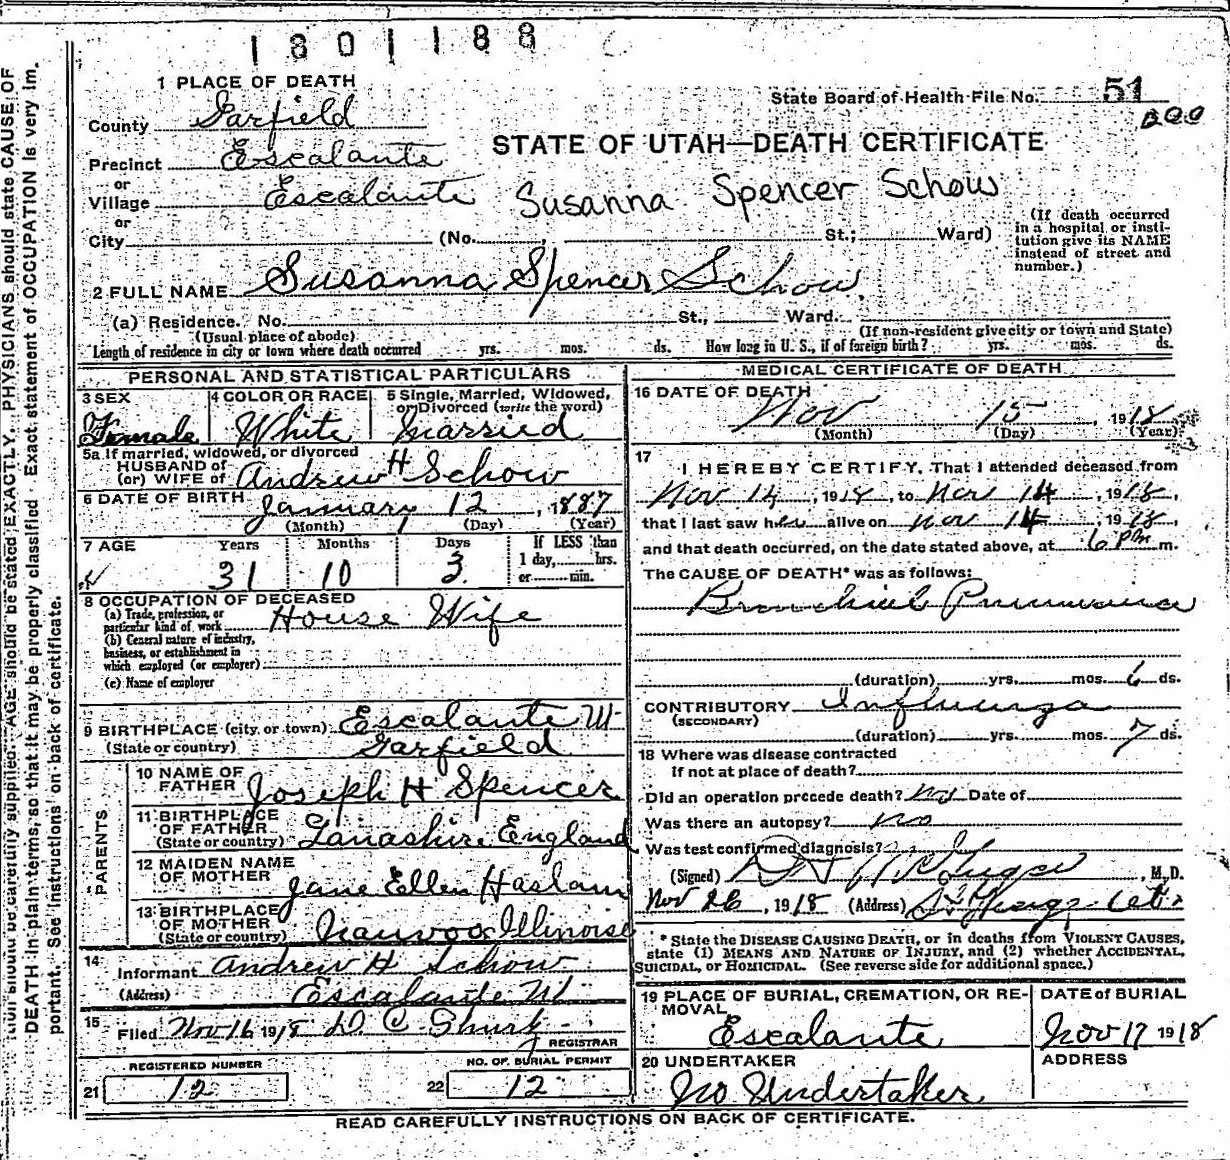 1801188
1 PLACE OF DEATH
State Board of Health File No. 51
County Garfield
STATE OF UTAH—DEATH CERTIFICATE
Precinct Escalante
or
Village Escalante Susanna Spencer Schow
or
City (No. St.; Ward)
(If death occurred
in a hospital or insti-
tution give its NAME
instead of street and
number.)
2 FULL NAME Susanna Spencer Schow
(a) Residence. No. St., Ward.
(Usual place of abode) (If non-resident give city or town and State)
Length of residence in city or town where death occurred yrs. mos. ds. How long in U. S., if of foreign birth? yrs. mos. ds.
PERSONAL AND STATISTICAL PARTICULARS
3 SEX 4 COLOR OR RACE 5 Single, Married, Widowed,
or Divorced (write the word)
Female White Married
5a If married, widowed, or divorced
HUSBAND of
(or) WIFE of Andrew H Schow
6 DATE OF BIRTH January 12, 1887
(Month) (Day) (Year)
7 AGE Years Months Days If LESS than
1 day, hrs.
or min.
31 10 3
8 OCCUPATION OF DECEASED
(a) Trade, profession, or
particular kind of work House Wife
(b) General nature of industry,
business, or establishment in
which employed (or employer)
(c) Name of employer
9 BIRTHPLACE (city or town) Escalante Ut
(State or country) Garfield
PARENTS
10 NAME OF
FATHER Joseph H Spencer
11 BIRTHPLACE
OF FATHER
(State or country) Lanashire England
12 MAIDEN NAME
OF MOTHER Jane Ellen Haslam
13 BIRTHPLACE
OF MOTHER
(State or country) Nauvoo Illinoise
14
Informant Andrew H Schow
(Address) Escalante Ut
15
Filed Nov 16 1918
REGISTRAR
REGISTERED NUMBER NO. OF BURIAL PERMIT
21 12 22 12
MEDICAL CERTIFICATE OF DEATH
16 DATE OF DEATH
Nov 15 1918
(Month) (Day) (Year)
17
I HEREBY CERTIFY, That I attended deceased from
Nov 14, 1918, to Nov 14, 1918,
that I last saw her alive on Nov 14, 1918,
and that death occurred, on the date stated above, at 6 Pm m.
The CAUSE OF DEATH* was as follows:
Bronchial Pneumonia
(duration) yrs. mos. 6 ds.
CONTRIBUTORY Influenza
(SECONDARY)
(duration) yrs. mos. 7 ds.
18 Where was disease contracted
If not at place of death?
Did an operation precede death? no Date of
Was there an autopsy? no
Was test confirmed diagnosis?
(Signed) , M.D.
Nov 26, 1918 (Address)
* State the DISEASE CAUSING DEATH, or in deaths from VIOLENT CAUSES,
state (1) MEANS AND NATURE OF INJURY, and (2) whether ACCIDENTAL,
SUICIDAL, or HOMICIDAL. (See reverse side for additional space.)
19 PLACE OF BURIAL, CREMATION, OR RE-
MOVAL
Escalante
DATE of BURIAL
Nov 17 1918
20 UNDERTAKER
No Undertaker
ADDRESS
READ CAREFULLY INSTRUCTIONS ON BACK OF CERTIFICATE.
should be carefully supplied. AGE should be stated EXACTLY. PHYSICIANS should state CAUSE OF
DEATH in plain terms, so that it may be properly classified. Exact statement of OCCUPATION is very im-
portant. See instructions on back of certificate.